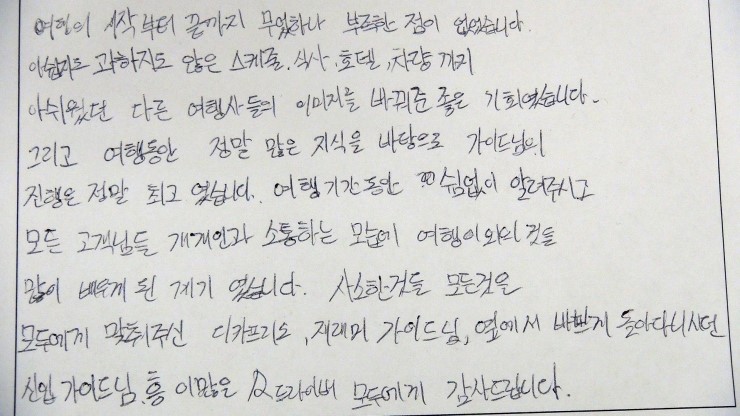 여행의 시작부터 끝까지 무엇하나 부족한 점이 없었습니다.
아쉽지도 과하지도 않은 스케줄, 식사, 호텔, 차량까지
아쉬웠던 다른 여행사들의 이미지를 바꿔준 좋은 기회였습니다.
그리고 여행동안 정말 많은 지식을 바탕으로 가이드님의
진행은 정말 최고 였습니다. 여행기간동안 쉼없이 알려주시고
모든 고객님들 개개인과 소통하는 모습에 여행이외의 것을
많이 배우게 된 계기 였습니다. 사소한것들 모든것을
모두에게 맞춰주신 디카프리오, 제래미 가이드님, 옆에서 바쁘게 돌아다니시던
신입 가이드님, 흥 이많은 드라이버 모두에게 감사드립니다.